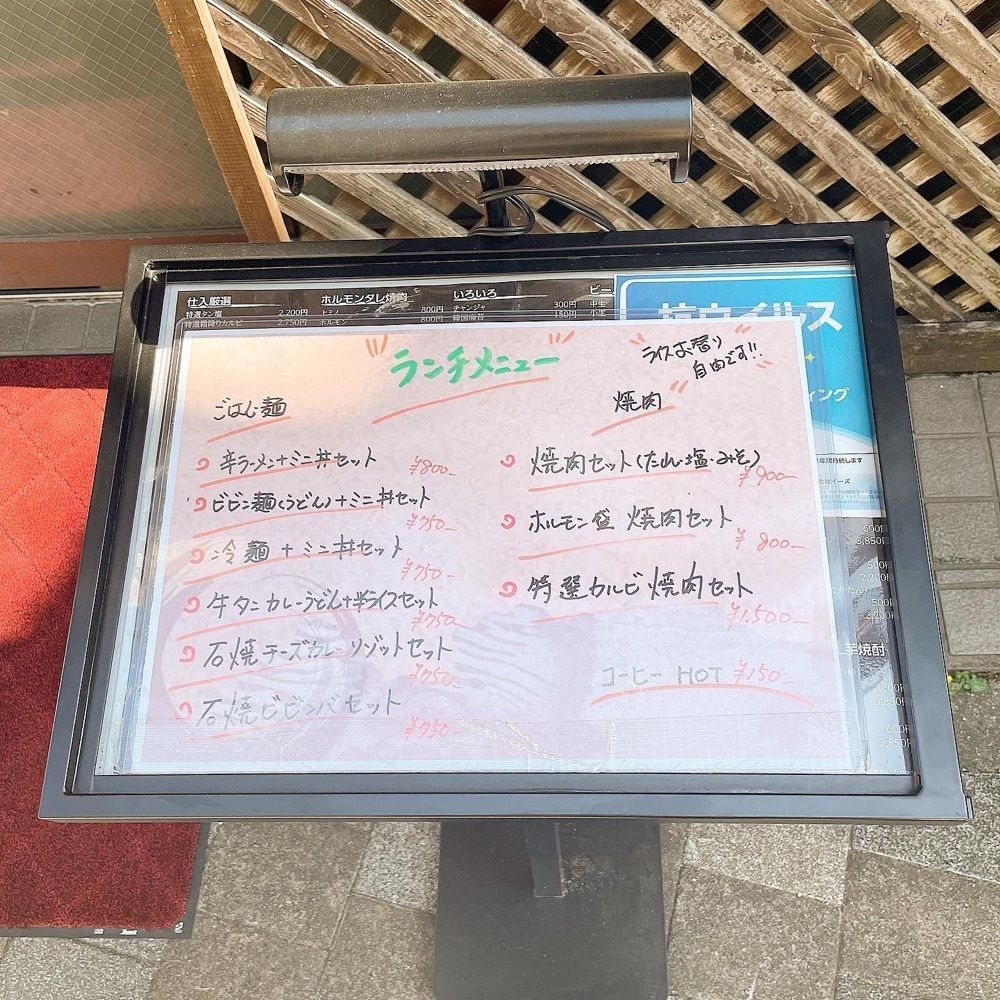 仕入厳選
特選タン塩 2,200円
特選霜降りカルビ 2,750円
ホルモンタレ焼肉
ミノ 800円
ホルモン 800円
いろいろ
チャンジャ 300円
韓国海苔 150円
ビー
中生
小生
抗ウイルス
ィング
ランチメニュー
ライスお替り
自由です!!
ごはん麺
辛ラーメン+ミニ丼セット ¥800-
ビビン麺(うどん)+ミニ丼セット
¥750-
冷麺+ミニ丼セット
¥750-
牛タンカレーうどん+半ライスセット
¥750-
石焼チーズカレーリゾットセット
¥750-
石焼ビビンバセット
¥750-
焼肉
焼肉セット(たれ・塩・みそ)
¥900-
ホルモン盛 焼肉セット
¥800-
特選カルビ焼肉セット
¥1.500-
コーヒー HOT ¥150-
年間持続します
会社イーズ
600円
3,850円
500円
2,200円
500円
2,200円
芋焼酎
600円
3,850円
600円
3,850円